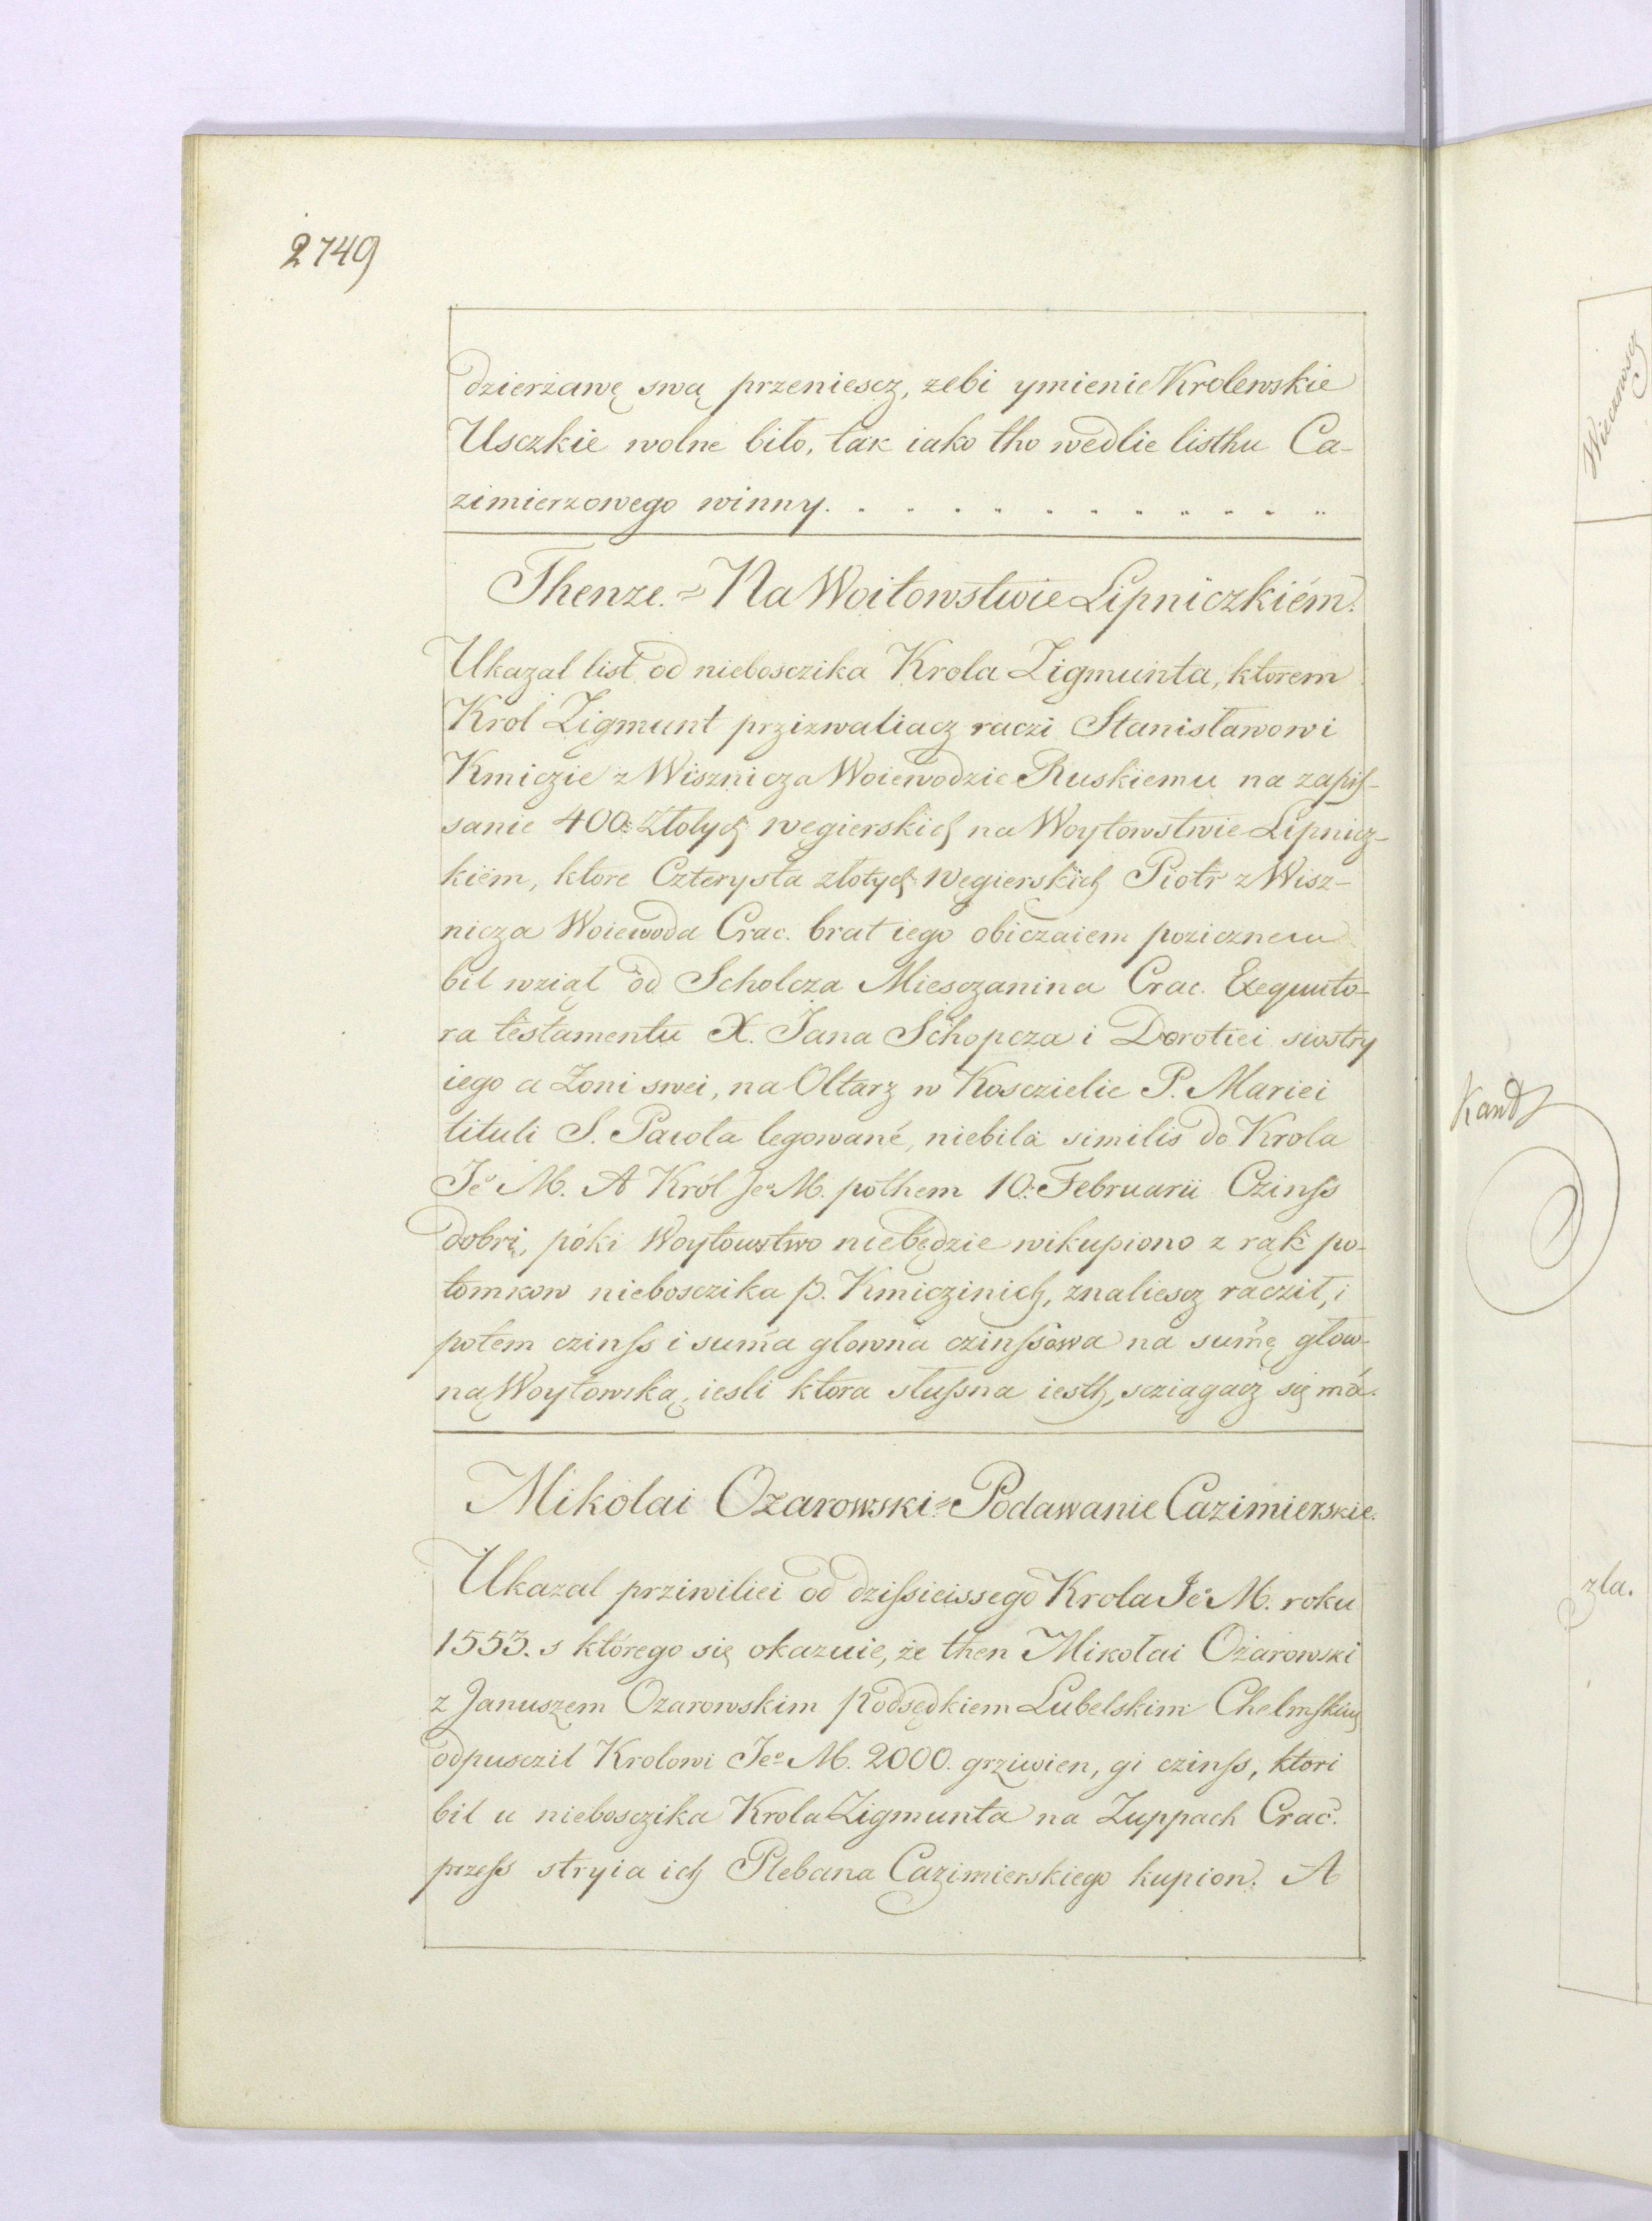 2749
dzierżawę swą przeniescz, zebi ymienie Krolewskie
Usczkie wolne biło, tak iako tho wedlie listhu Ca-
zimierzowego winny. . . . . . . . . . . .
Thenze. = Na Woitowstwie Lipniczkiém.
Ukazal list od nieboszczika Krola Zigmunta, ktorem
Krol Zigmunt przizwaliacz raczi Stanisławowi
Kmiczie z Wisznicza Woiewodzie Ruskiemu na zapis-
sanie 400: Złotych węgierskich na Woytowstwie Lipnicz-
kiém, ktore Czterysta złotych węgierskich Piotr z Wisz-
nicza Woiewoda Crac. brat iego obiczaiem pozicznem
bił wziął od Scholcza Miesczanina Crac. Exequuto-
ra testamentu X. Jana Schopcza i Dorotiei siostry
iego a Zoni swei, na Ołtarz w Kosczielie P. Mariei
tituli S. Pawla legowané, niebila similis do Krola
Je° M. A Król Je° M. pothem 10: Februarii Czinss
dobri, póki Woytowstwo niebędzie wikupiono z rąk po-
tomkow niebosczika p. Kmiczinich, znaliescz racził, i
potém czinss i suma glowna czinssowa na sumę glow-
ną Woytowską, iesli ktora slussna iesth, scziągacz się má.
Mikolai Ozarowski = Podawanie Cazimierskie.
Ukazal prziwiliei od dzissieissego Krola Je° M. roku
1553. s którego się okazuie, że then Mikołai Ożarowski
z Januszem Ozarowskim Podsędkiem Lubelskim Chelmskim
odpuscził Krolowi Je° M. 2000. grziwien, gi czinss, ktori
bił u niebosczika Krola Zigmunta na Zuppach Crac.
przess stryia ich Plebana Cazimierskiego kupion. A
zła.